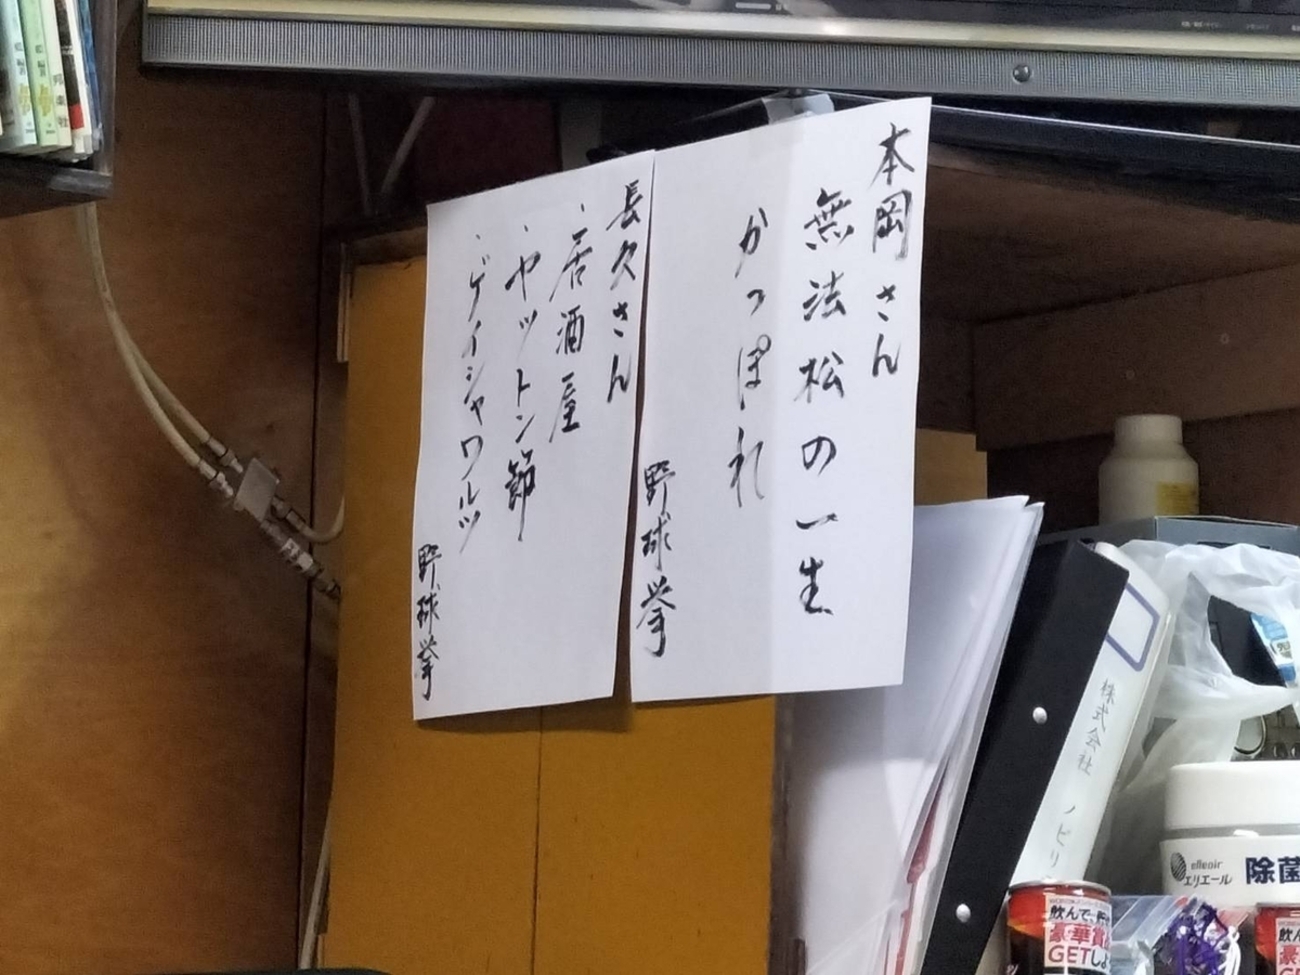 本岡さん
無法松の一生
かっぽれ
野球拳
長久さん
・居酒屋
・ヤットン節
・ゲイシャワルツ
野球拳
株式会社 ノビリ
elleair
エリエール
除菌
飲んで、貯
豪華賞
GETしよ
飲ん
豪
GE